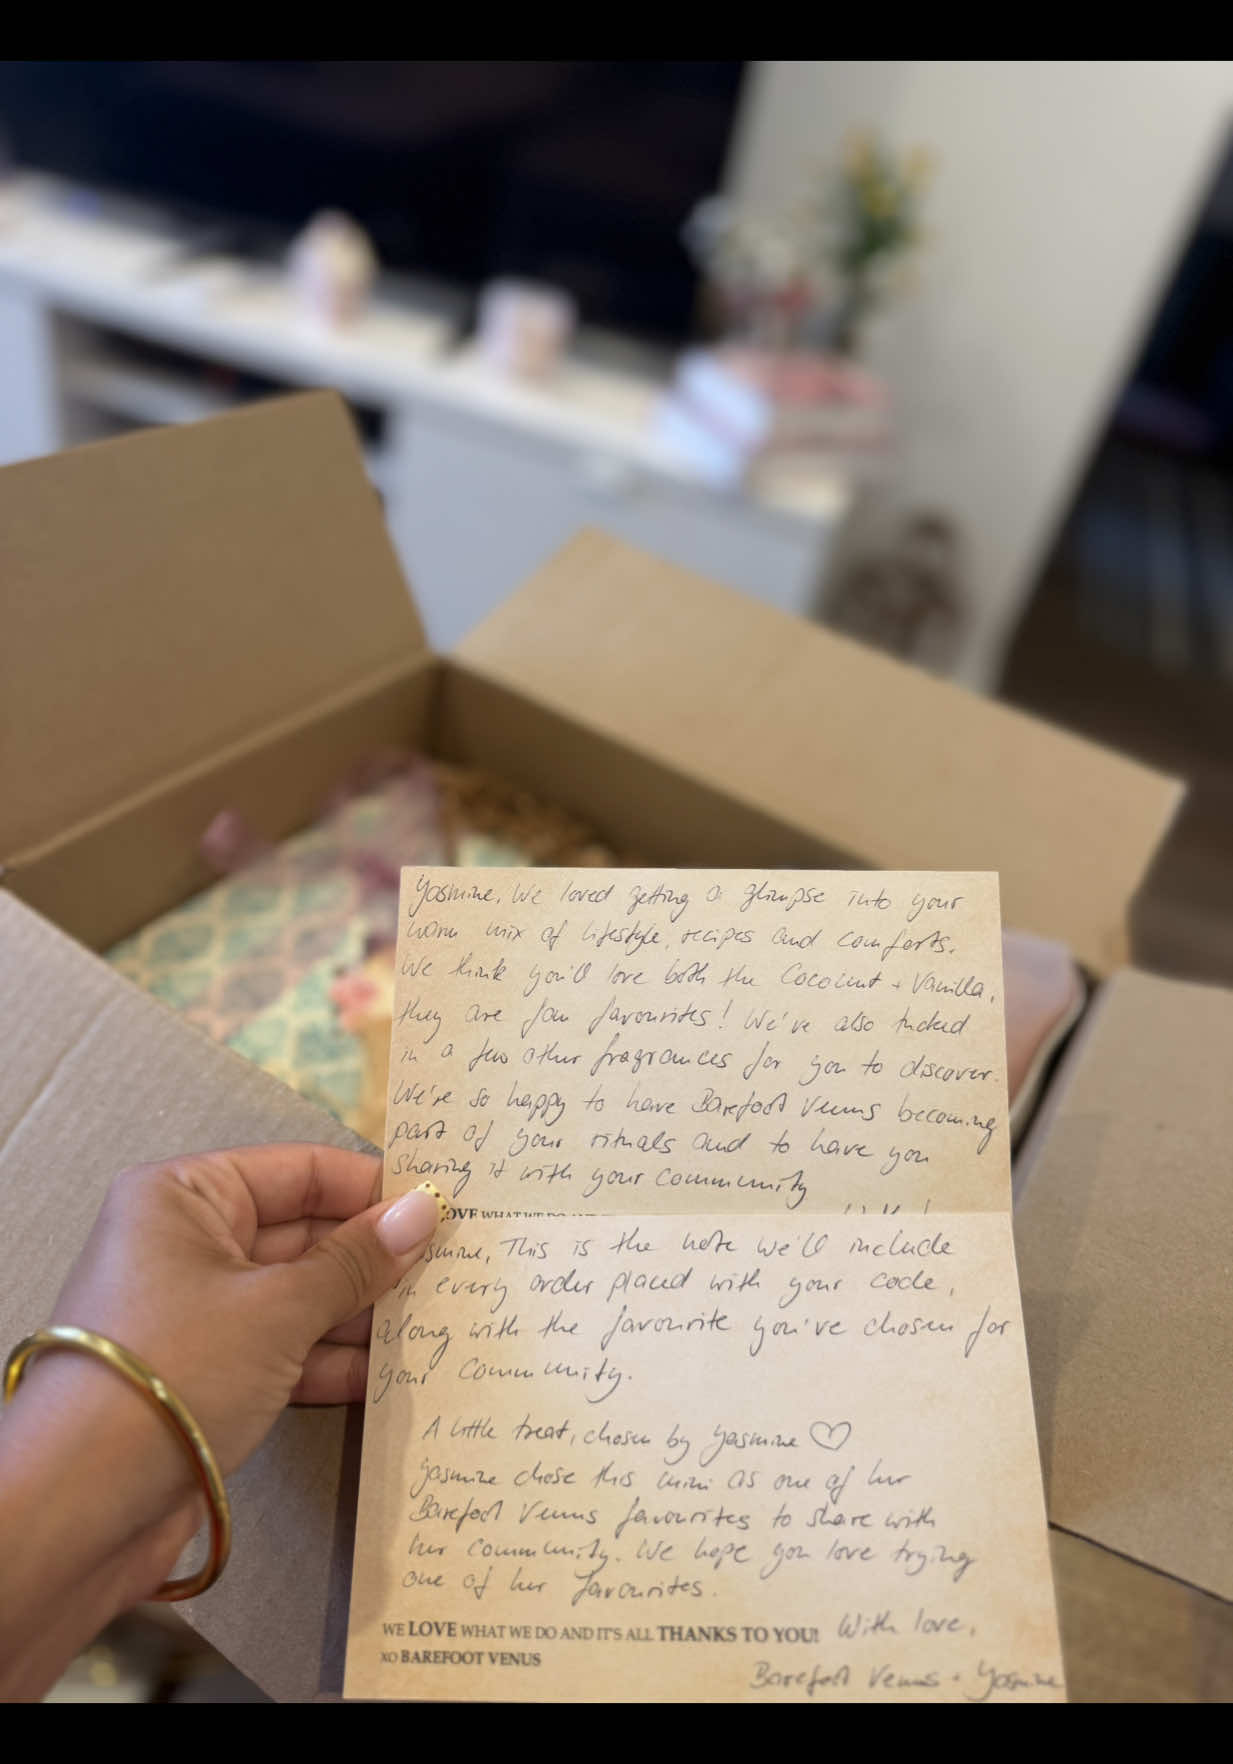 Yasmine, We loved getting a glimpse into your
warm mix of lifestyle, recipes and comforts.
We think you'll love both the Coconut + Vanilla,
they are fan favourites! We've also tucked
in a few other fragrances for you to discover.
We're so happy to have Barefoot Venus becoming
part of your rituals and to have you
sharing it with your community
OVE WHAT WE DO AND
smine, This is the note we'll include
in every order placed with your code,
along with the favourite you've chosen for
your community.
A little treat, chosen by Yasmine ♡
Yasmine chose this mini as one of her
Barefoot Venus favourites to share with
her community. We hope you love trying
one of her favourites.
WE LOVE WHAT WE DO AND IT'S ALL THANKS TO YOU! With love,
XO BAREFOOT VENUS
Barefoot Venus + Yasmine